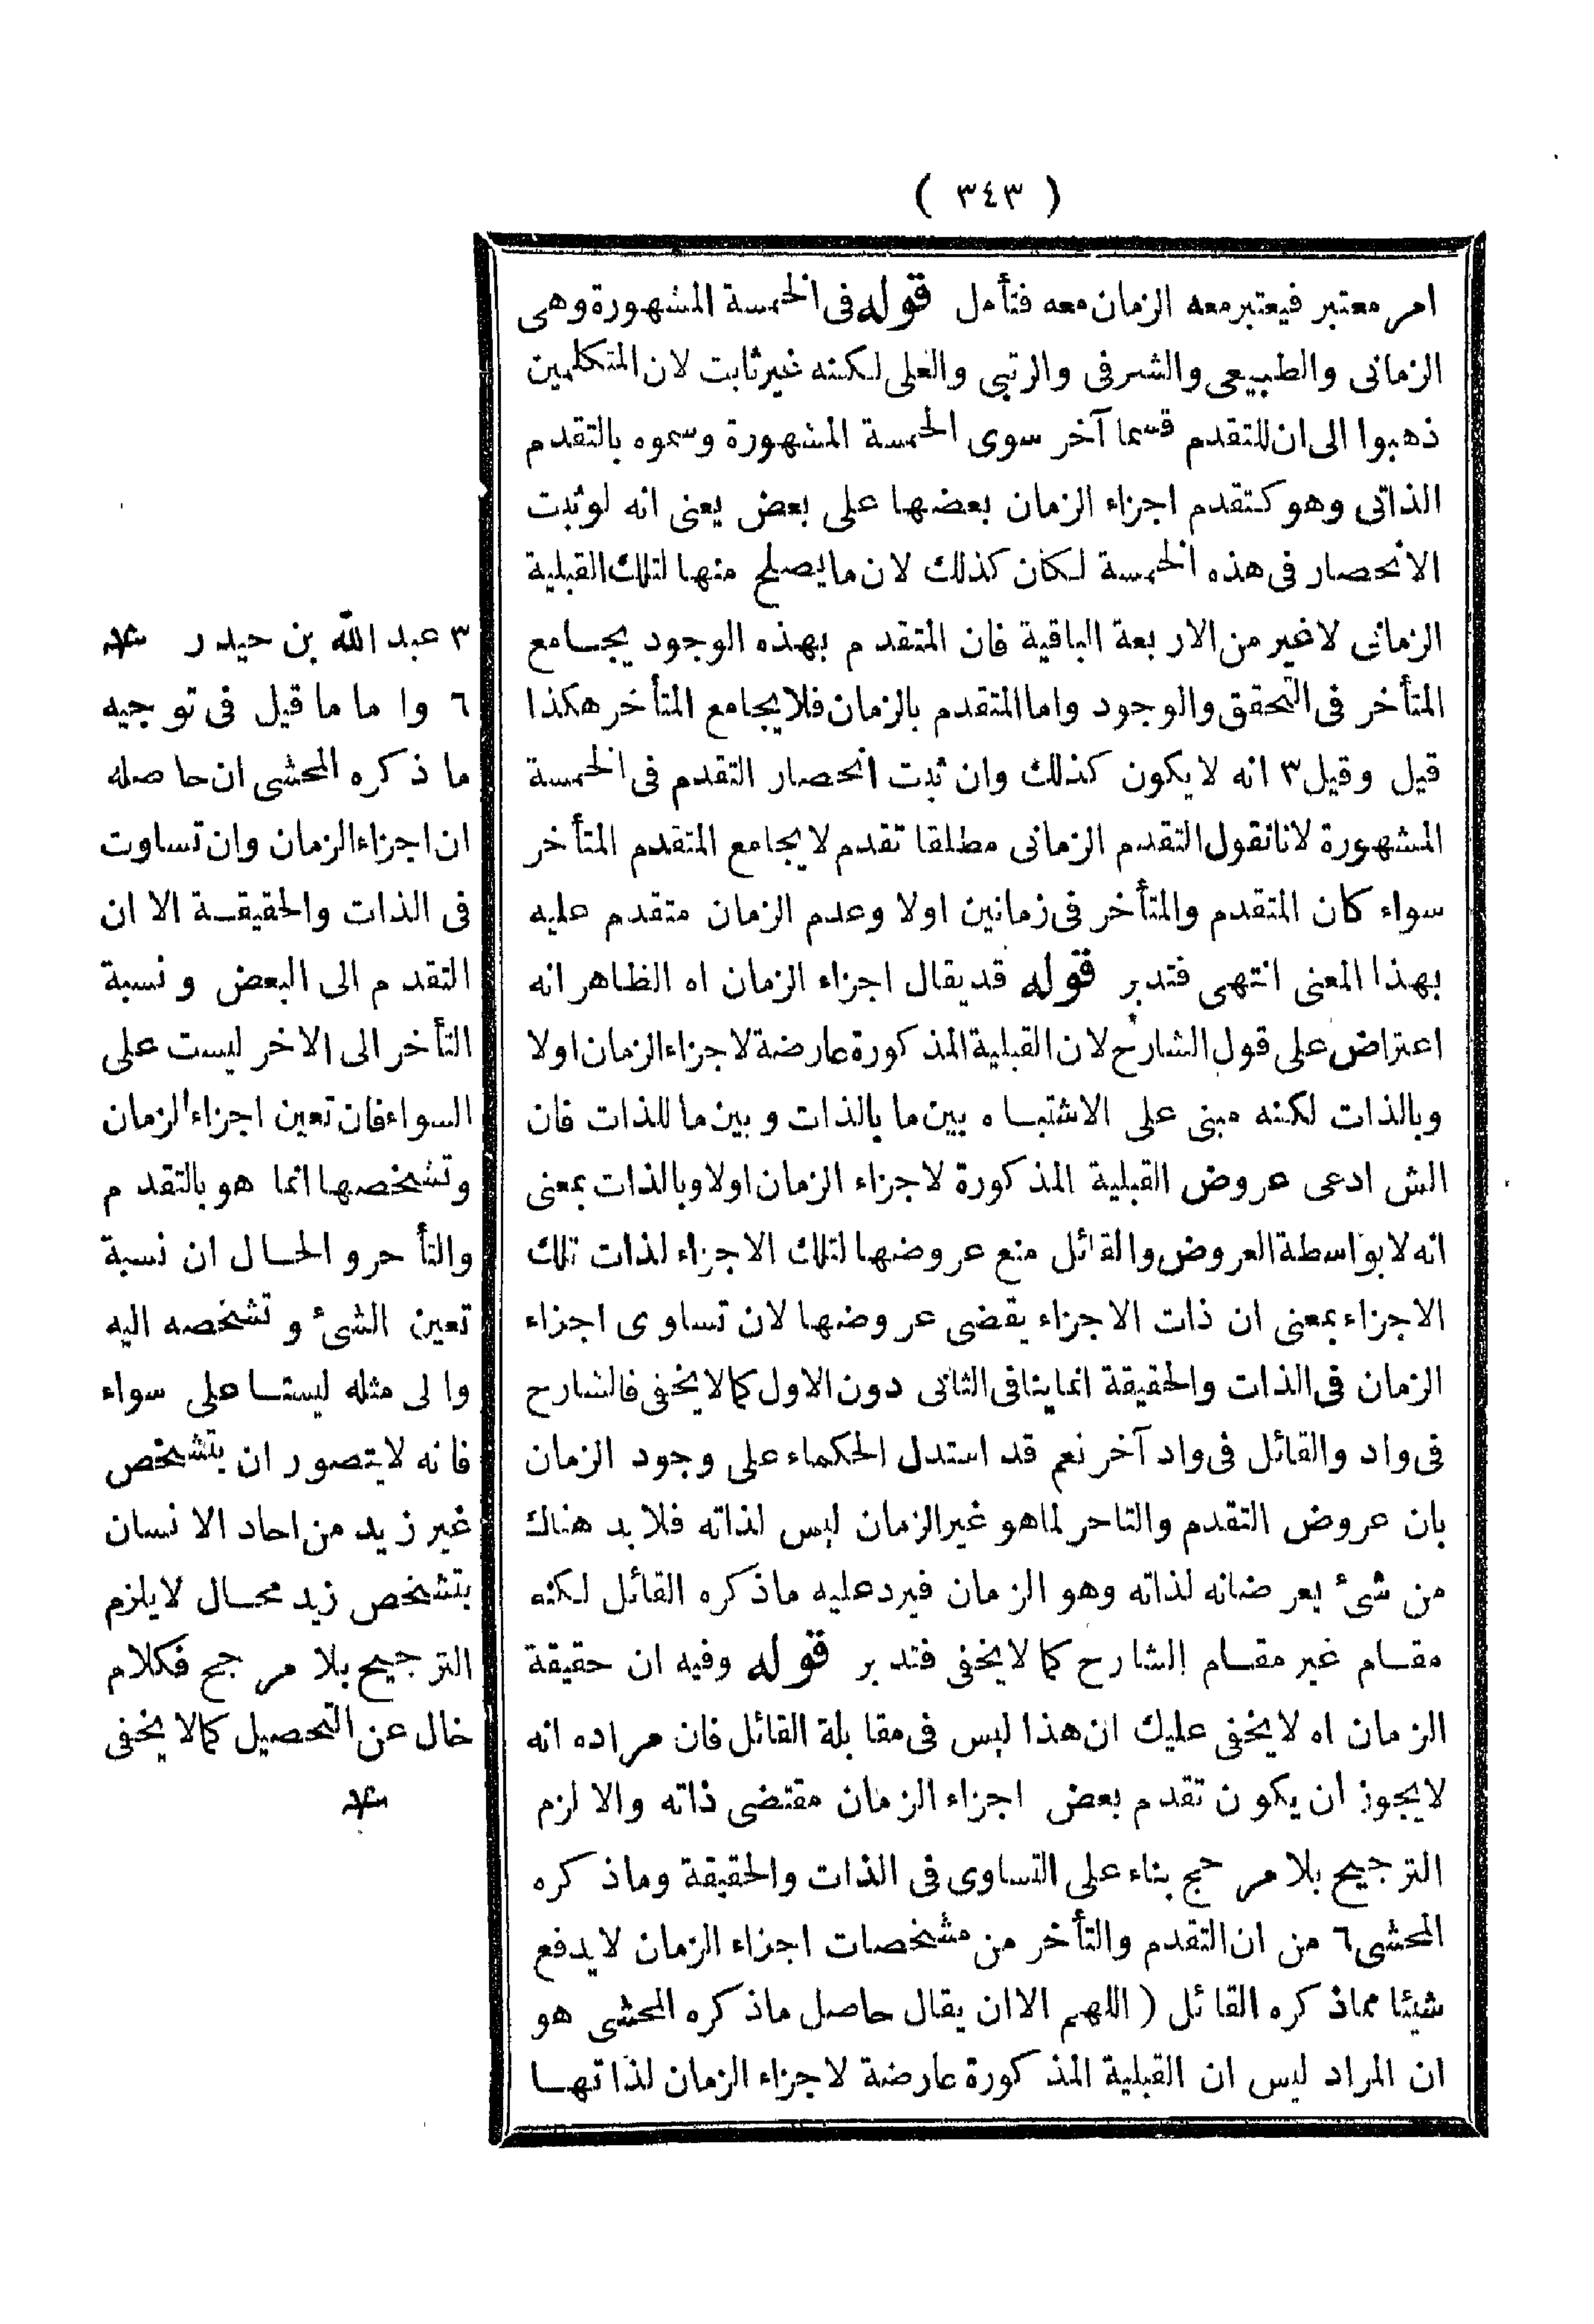 ( ٣٤٣ )
امر معتبر فيعتبر معه الزمان معه فتأمل قوله فى الخمسة المشهورة وهى
الزمانى والطبيعى والشرفى والرتبى والعلى لكنه غير ثابت لان المتكلمين
ذهبوا الى ان للتقدم قسما آخر سوى الخمسة المشهورة وسموه بالتقدم
الذاتى وهو كتقدم اجزاء الزمان بعضها على بعض يعنى انه لو ثبت
الانحصار فى هذه الخمسة لكان كذلك لان ما يصلح منها لتلك القبلية
الزمانى لا غير من الاربعة الباقية فان المتقدم بهذه الوجود يجامع
المتأخر فى التحقق والوجود واما المتقدم بالزمان فلا يجامع المتأخر هكذا
قيل وقيل ٣ انه لا يكون كذلك وان ثبت انحصار التقدم فى الخمسة
المشهورة لانا نقول التقدم الزمانى مطلقا تقدم لا يجامع المتقدم المتأخر
سواء كان المتقدم والمتأخر فى زمانين اولا وعدم الزمان متقدم عليه
بهذا المعنى انتهى فتدبر قوله قد يقال اجزاء الزمان اه الظاهر انه
اعتراض على قول الشارح لان القبلية المذكورة عارضة لاجزاء الزمان اولا
وبالذات لكنه مبنى على الاشتباه بين ما بالذات وبين ما للذات فان
الش ادعى عروض القبلية المذكورة لاجزاء الزمان اولا وبالذات بمعنى
انه لا بواسطة العروض والقائل منع عروضها لتلك الاجزاء لذات تلك
الاجزاء بمعنى ان ذات الاجزاء يقضى عروضها لان تساوى اجزاء
الزمان فى الذات والحقيقة انما ينافى الثانى دون الاول كما لا يخفى فالشارح
فى واد والقائل فى واد آخر نعم قد استدل الحكماء على وجود الزمان
بان عروض التقدم والتاحر لما هو غير الزمان ليس لذاته فلا بد هناك
من شئ يعرضانه لذاته وهو الزمان فيرد عليه ماذكره القائل لكنه
مقام غير مقام الشارح كما لا يخفى فتدبر قوله وفيه ان حقيقة
الزمان اه لا يخفى عليك ان هذا ليس فى مقابلة القائل فان مراده انه
لا يجوز ان يكون تقدم بعض اجزاء الزمان مقتضى ذاته والا لزم
الترجيح بلا مرجح بناء على التساوى فى الذات والحقيقة وماذكره
المحشى ٦ من ان التقدم والتأخر من مشخصات اجزاء الزمان لا يدفع
شيئا مماذكره القائل ( اللهم الا ان يقال حاصل ماذكره المحشى هو
ان المراد ليس ان القبلية المذكورة عارضة لاجزاء الزمان لذاتها
٣ عبد الله بن حيدر
٦ واما ما قيل فى توجيه
ما ذكره المحشى ان حاصله
ان اجزاء الزمان وان تساوت
فى الذات والحقيقة الا ان
التقدم الى البعض ونسبة
التأخر الى الاخر ليست على
السواء فان تعين اجزاء الزمان
وتشخصها انما هو بالتقدم
والتأحر والحال ان نسبة
تعين الشئ وتشخصه اليه
والى مثله ليستا على سواء
فانه لا يتصور ان يتشخص
غير زيد من احاد الانسان
بتشخص زيد محال لا يلزم
الترجيح بلا مرجح فكلام
خال عن التحصيل كما لا يخفى